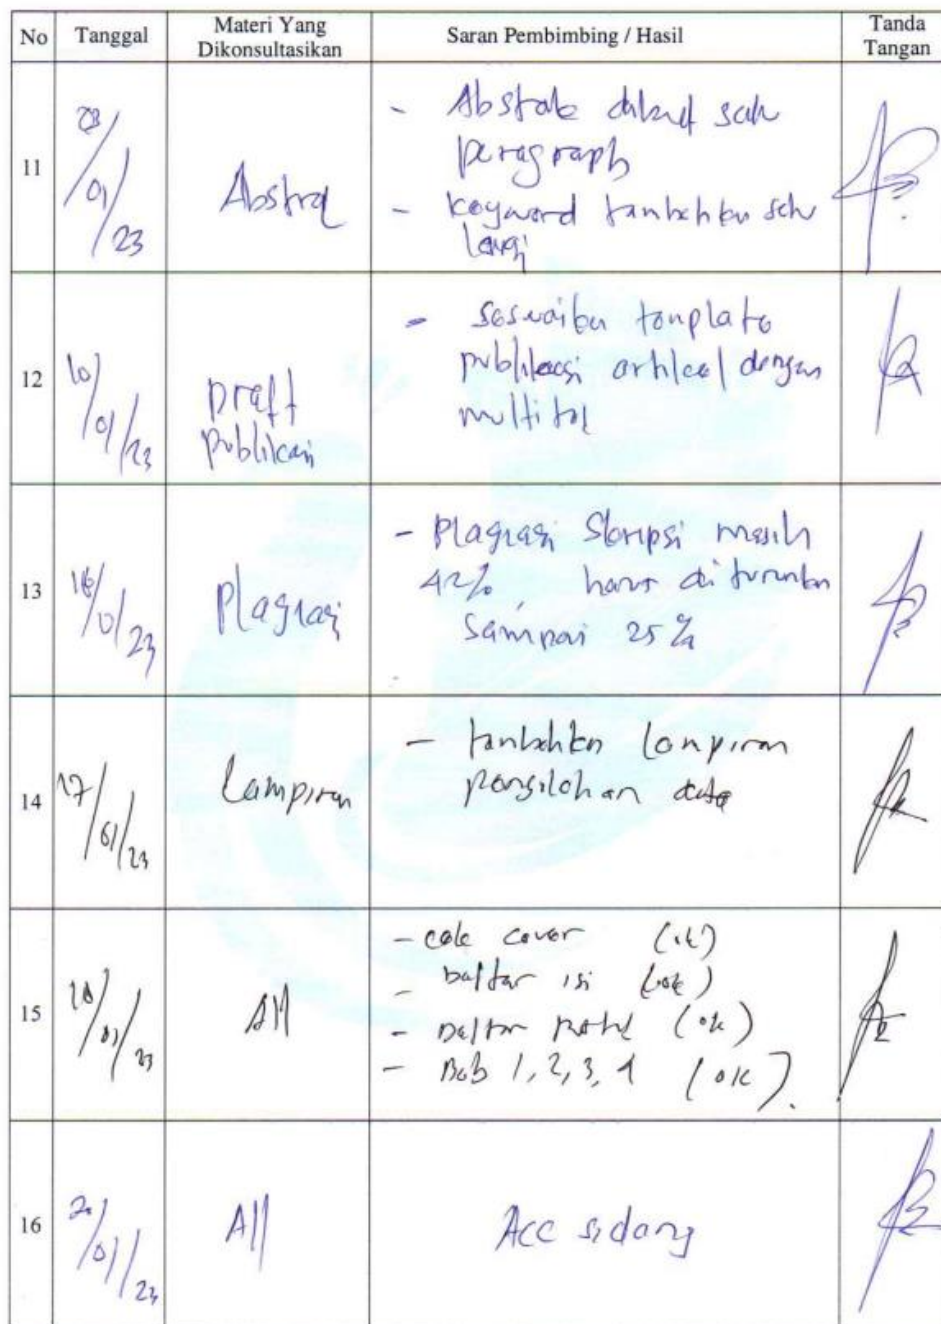 No Tanggal Materi Yang Dikonsultasikan Saran Pembimbing / Hasil Tanda Tangan
11
/01/23
Abstrak
- Abstrak dibuat satu
paragraph
- keyword tambahkan satu
lagi
12
10/01/23
Draft
publikasi
- sesuaikan template
publikasi artikel dengan
13
16/01/23
Plagiasi
- Plagiasi Skripsi masih
42% harus di turunkan
sampai 25%
14
17/01/23
Lampiran
- tambahkan lampiran
pengolahan data
15
/01/23
All
- cek cover (ok)
- Daftar isi (ok)
- Daftar (ok)
- Bab 1, 2, 3, 4 (ok).
16
20/01/23
All
Acc sidang